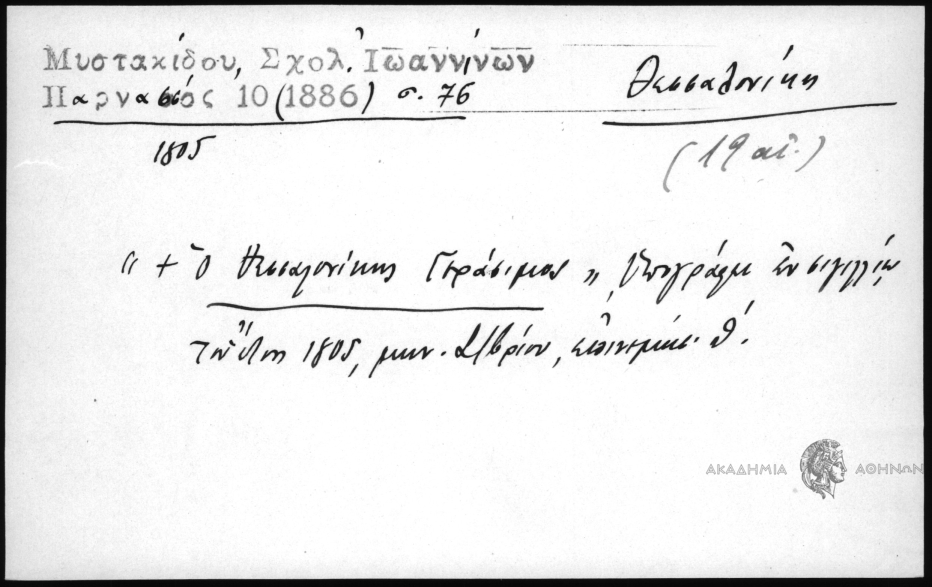 Μυστακίδου, Σχολ. Ἰωαννίνων
Παρνασσός 10 (1886) σ. 76
Θεσσαλονίκης
1805
(19 αἰ.)
“ + ὁ Θεσσαλονίκης Γεράσιμος „ ὑπογράφει ἐν σιγιλλίῳ
τοῦ ἔτους 1805, μην. 8/βρίου, ἐπινεμήσ. θ΄.
ΑΚΑΔΗΜΙΑ ΑΘΗΝΩΝ